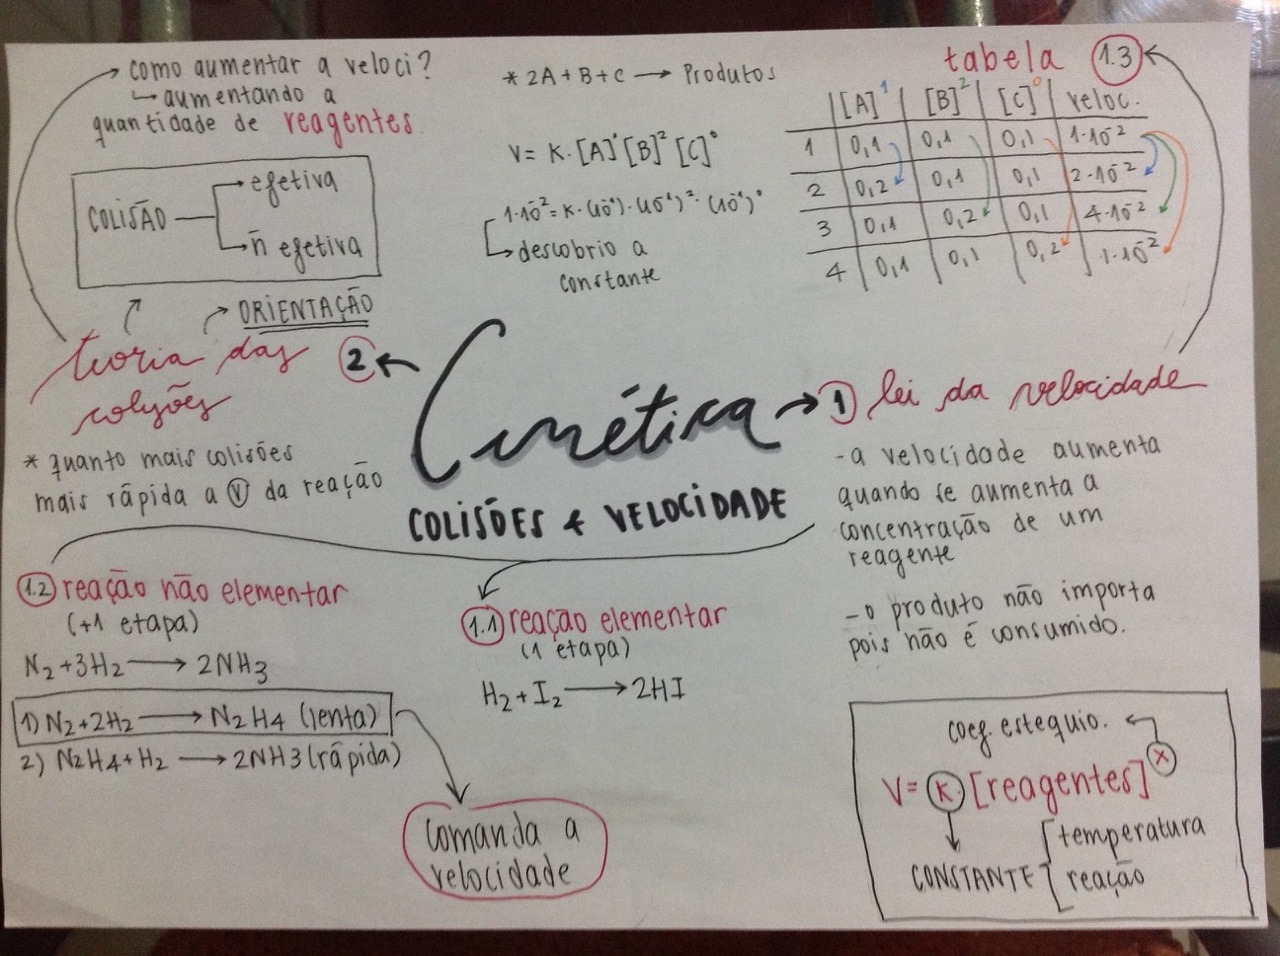 como aumentar a veloci?
↳ aumentando a
quantidade de reagentes.
COLISÃO
efetiva
ñ efetiva
ORIENTAÇÃO
teoria das
colisões
2
* quanto mais colisões
mais rápida a V da reação
* 2A + B + C → Produtos
V = K · [A]¹ [B]² [C]⁰
1·10⁻² = K · (10⁻¹) · (10⁻¹)² · (10⁻¹)⁰
descobrio a
constante
tabela 1.3
[A]¹ | [B]² | [C]⁰ | veloc.
1 | 0,1 | 0,1 | 0,1 | 1·10⁻²
2 | 0,2 | 0,1 | 0,1 | 2·10⁻²
3 | 0,1 | 0,2 | 0,1 | 4·10⁻²
4 | 0,1 | 0,1 | 0,2 | 1·10⁻²
Cinética
COLISÕES & VELOCIDADE
1 lei da velocidade
- a velocidade aumenta
quando se aumenta a
concentração de um
reagente
- o produto não importa
pois não é consumido.
1.2 reação não elementar
(+1 etapa)
N₂ + 3H₂ → 2NH₃
1) N₂ + 2H₂ → N₂H₄ (lenta)
2) N₂H₄ + H₂ → 2NH3 (rápida)
comanda a
velocidade
1.1 reação elementar
(1 etapa)
H₂ + I₂ → 2HI
coef. estequio.
V = K · [reagentes]ˣ
CONSTANTE
temperatura
reação